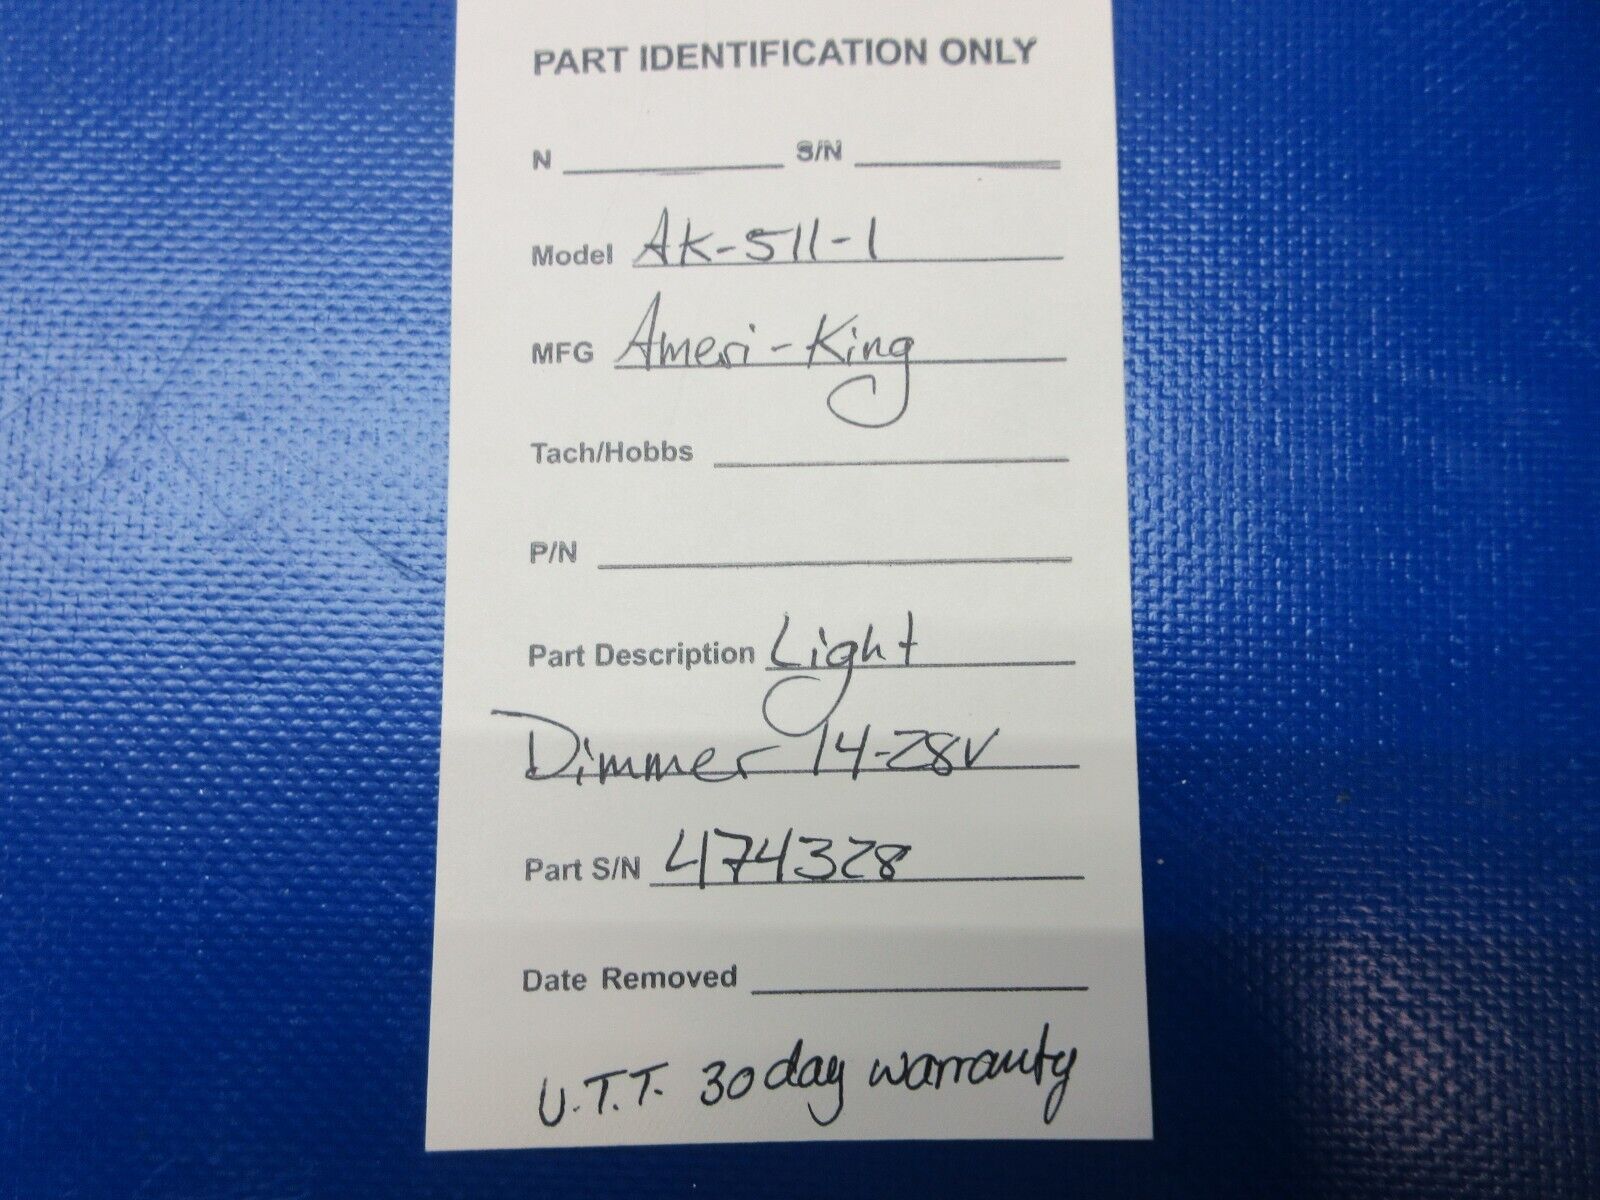 PART IDENTIFICATION ONLY
N S/N
Model AK-511-1
MFG Ameri-King
Tach/Hobbs
P/N
Part Description Light
Dimmer 14-28V
Part S/N 474328
Date Removed
U.T.T. 30 day warranty